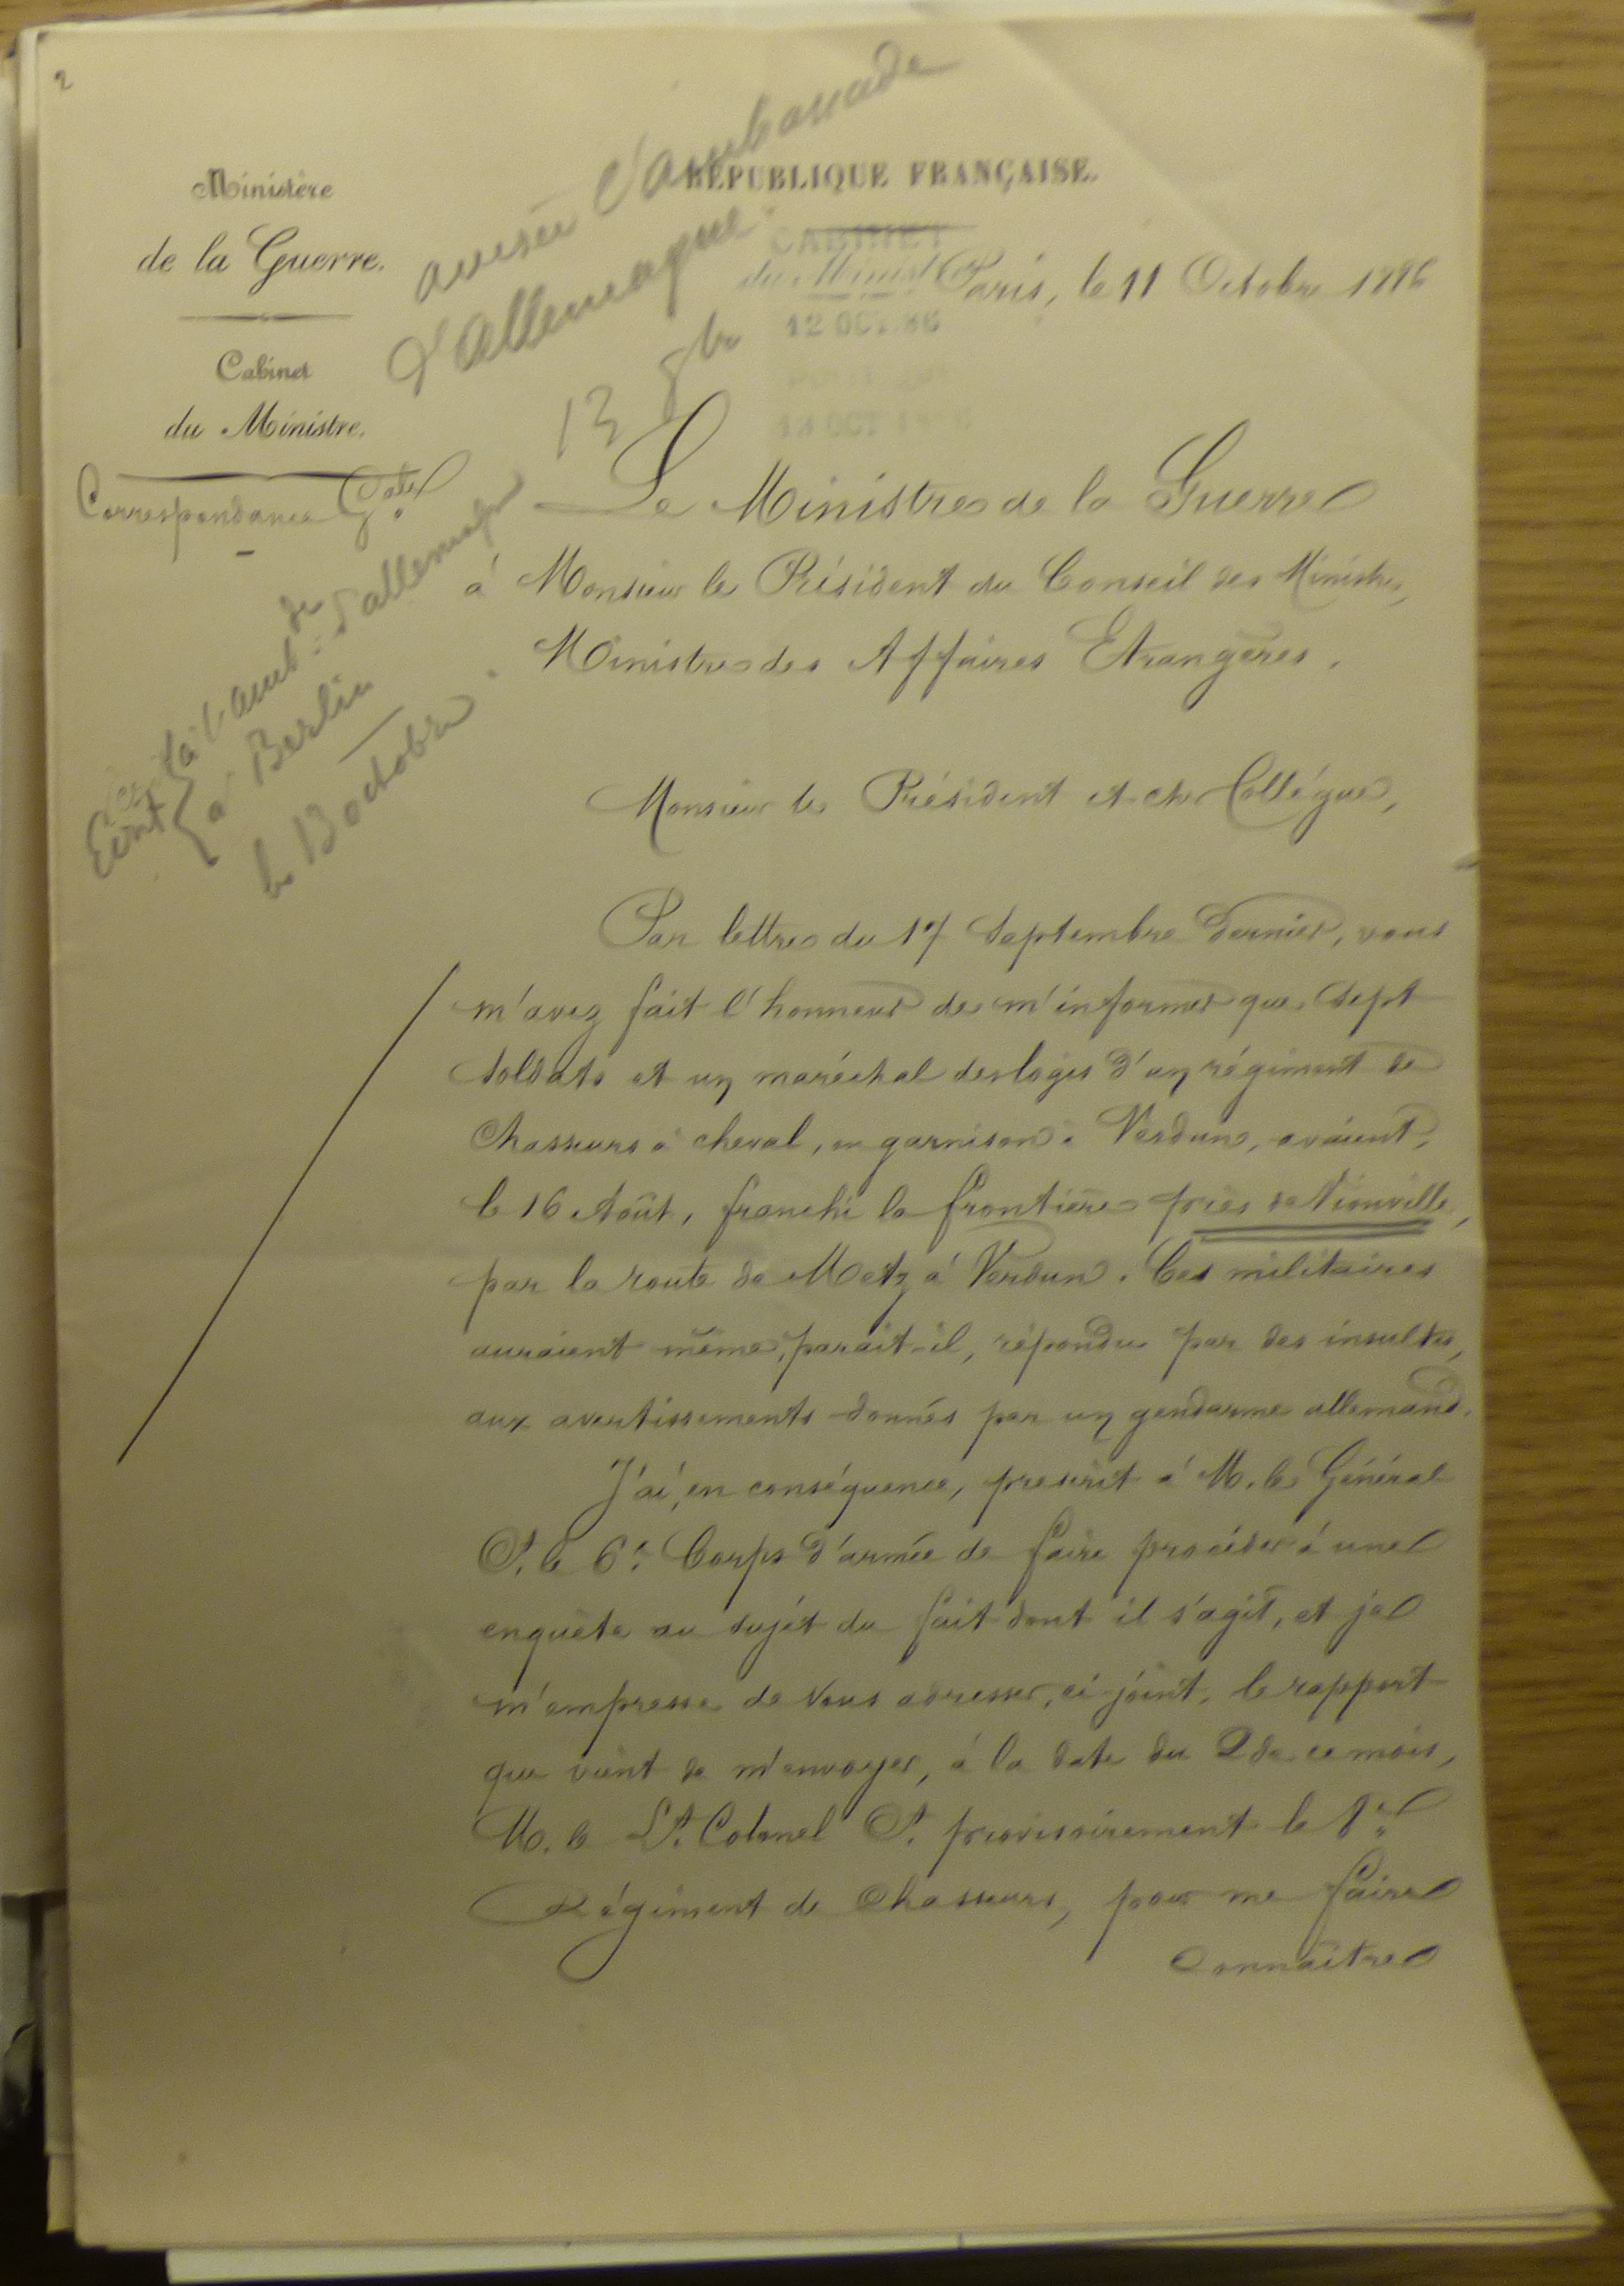 2
Ministère
de la Guerre.
Cabinet
du Ministre.
Correspondance Gale
RÉPUBLIQUE FRANÇAISE.
aviser l'ambassade
d'Allemagne.
13 8bre
CABINET
du Ministre
12 OCT. 86
13 OCT
Paris, le 11 Octobre 1886
Ecrit
à l'amb. de
d'allemagne
à Berlin
le 13 octobre.
Le Ministre de la Guerre
à Monsieur le Président du Conseil des Ministres,
Ministre des Affaires Etrangères.
Monsieur le Président et cher Collégue,
Par lettre du 17 Septembre dernier, vous
m'avez fait l'honneur de m'informer que sept
soldats et un maréchal des logis d'un régiment de
Chasseurs à cheval, en garnison à Verdun, avaient,
le 16 Août, franchi la frontière près de Vionville,
par la route de Metz à Verdun. Ces militaires
auraient même, parait-il, répondu par des insultes,
aux avertissements donnés par un gendarme allemand.
J'ai, en conséquence, prescrit à M. le Général
Ct. le 6e. Corps d'armée de faire procéder à une
enquête au sujet du fait dont il s'agit, et je
m'empresse de vous adresser, ci-joint, le rapport
que vient de m'envoyer, à la date du 2 de ce mois,
M. le Lt. Colonel Ct. provisoirement le 8e
Régiment de Chasseurs, pour me faire
connaître